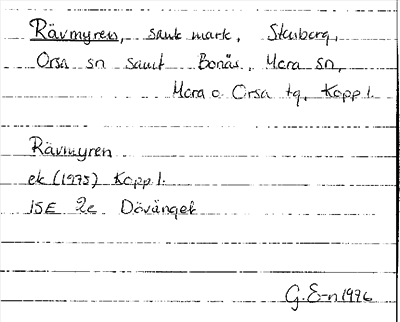 Rävmyren, sank mark, Stenberg,
Orsa sn samt Bonäs, Mora sn,
Mora o Orsa tg, Kopp l.
Rävmyren
ek (1975) Kopp l.
15E 2e Dävänget
G. E-n 1976